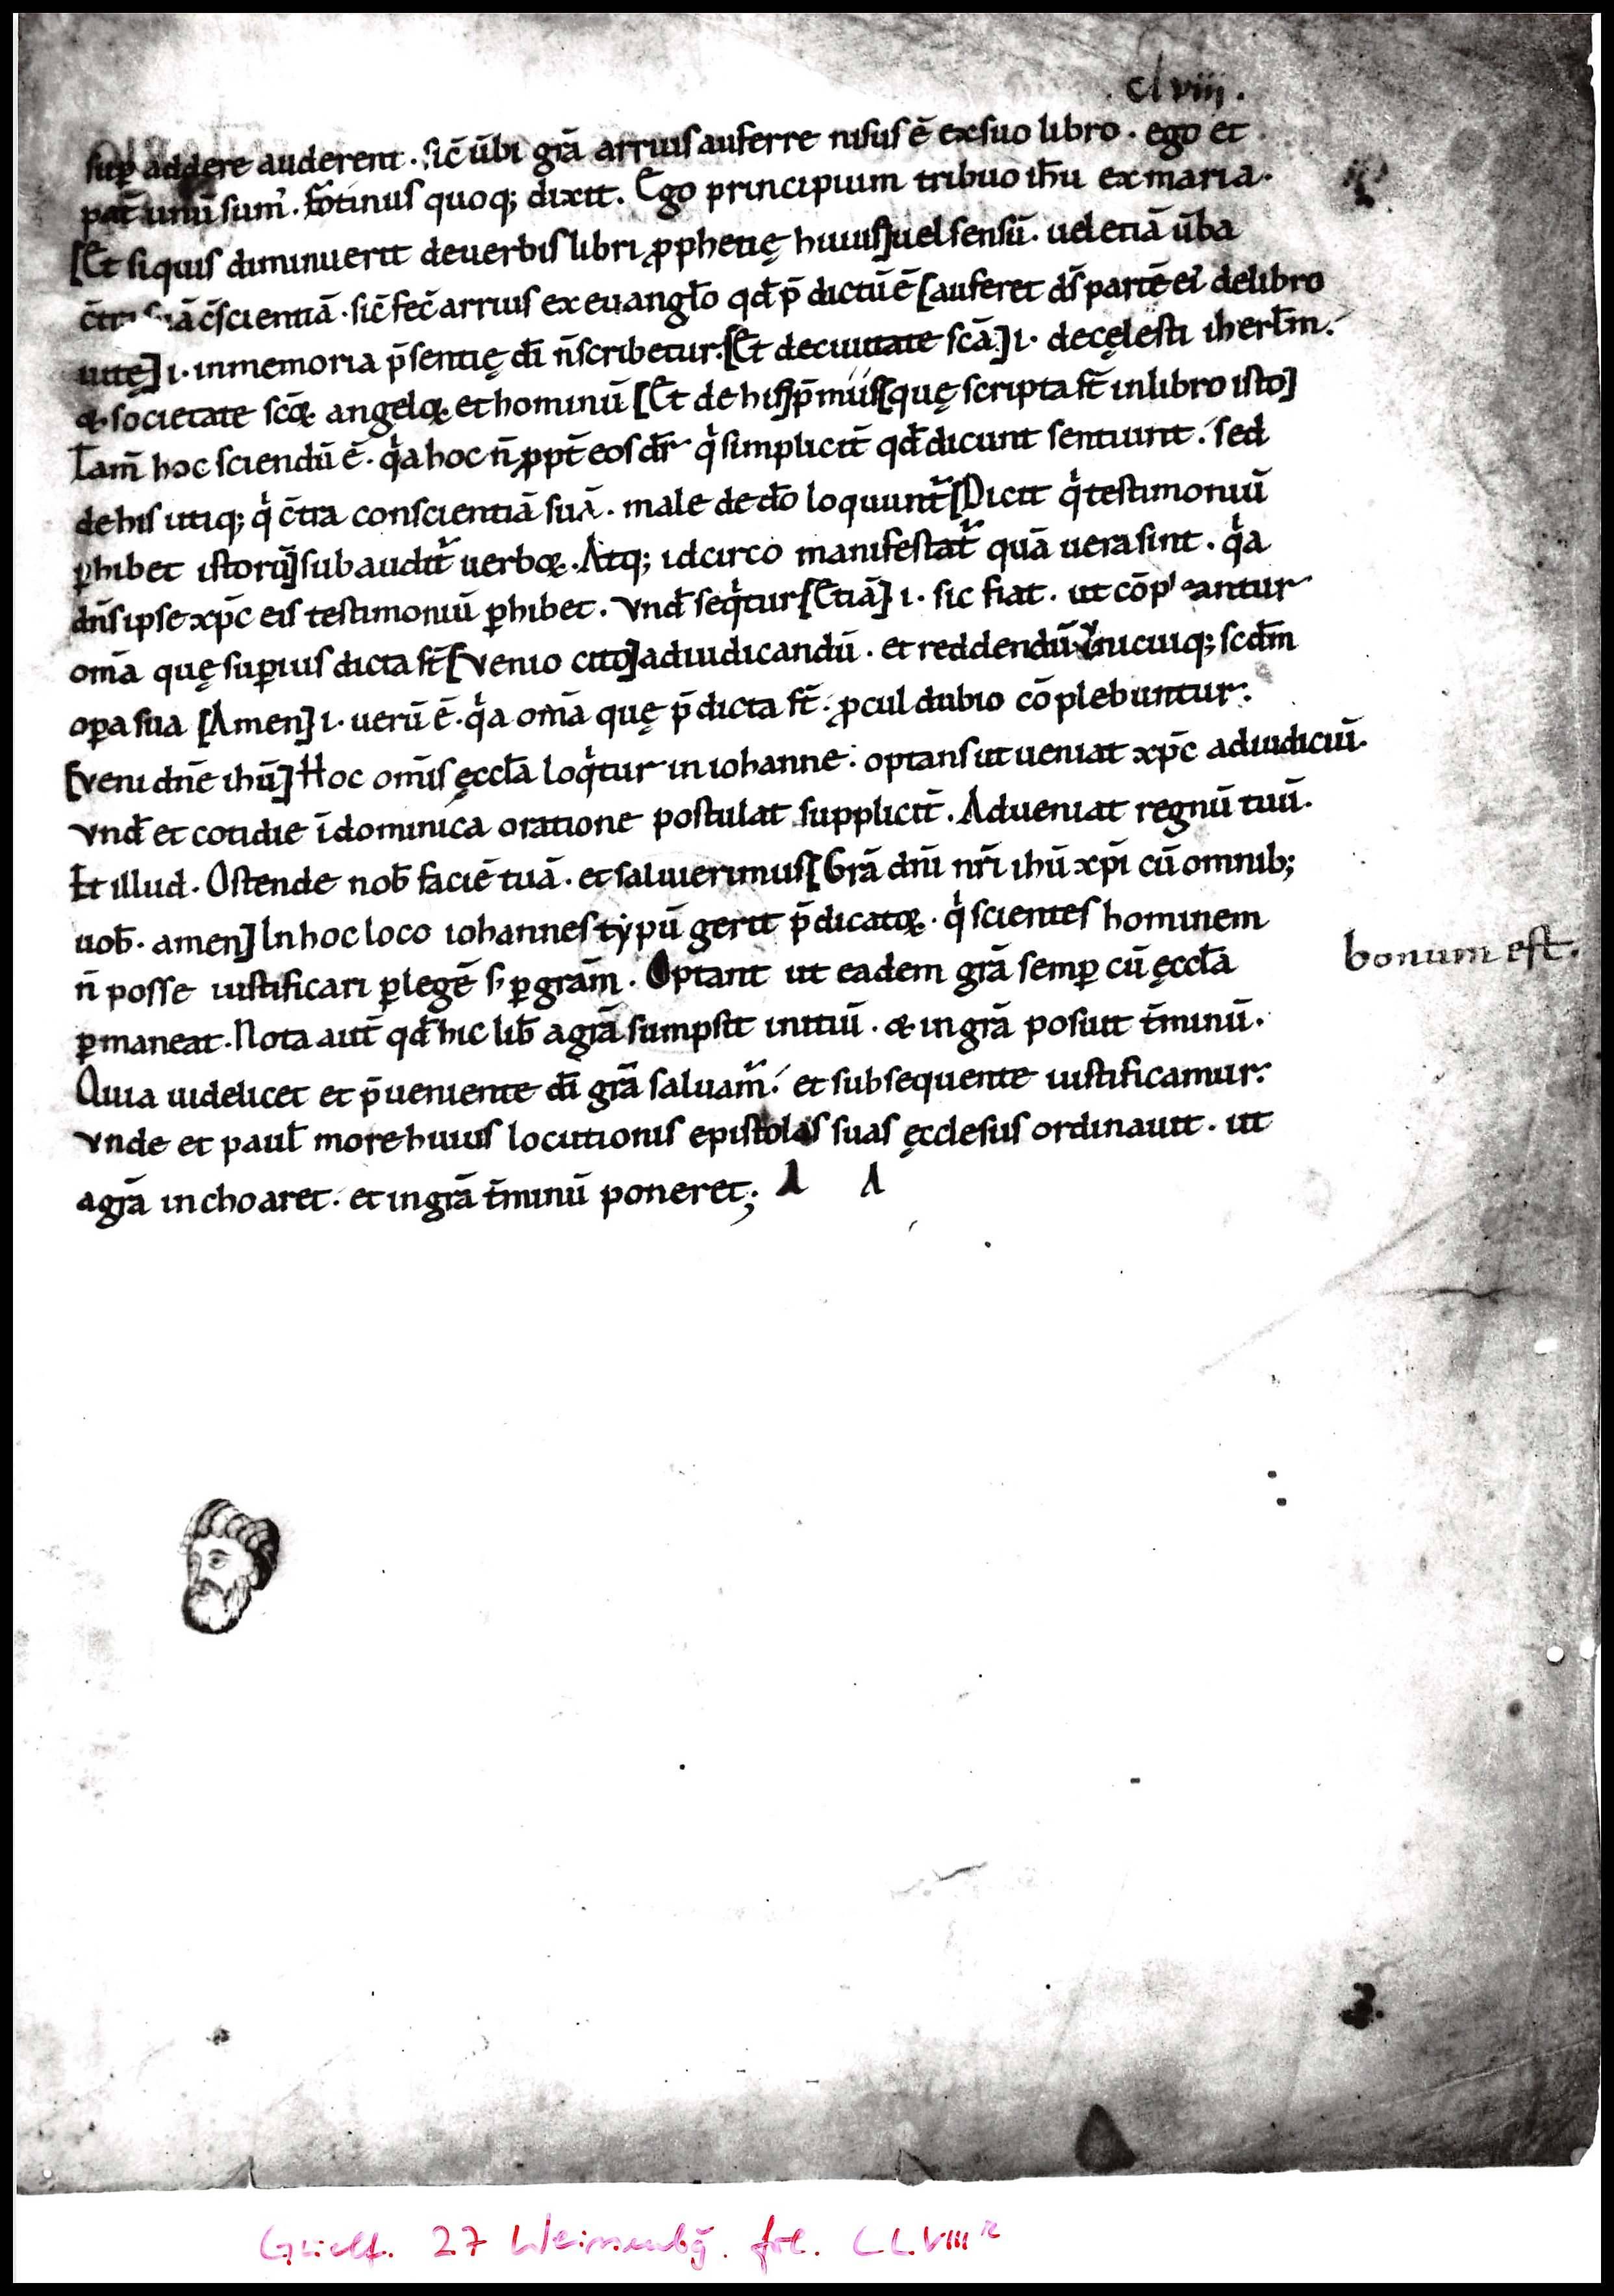 . cl viii .
sup̄ addere auderent . sic̄ ūbi gr̄a arrius auferre nisus ē ex suo libro . ego et
pat̄ unū sum᷒ . fotinus quoq; dixit . Ego principium tribuo ih̄u ex maria .
[Et siquis diminuerit de uerbis libri ꝓphetię huius] uel sensū . uel etiā ūba
c̄tra suā c̄scientiā . sic̄ fec̄ arrius ex euangl̄o qd̄ p̄dictū ē [auferet ds̄ partē ei᷒ de libro
uitę] .i. in memoria p̄sentię dī n̄ scribetur. [Et de ciuitate sc̄a] .i. de cęlesti iherl̄m .
& societate sc̄oꝝ angeloꝝ et hominū [Et de his] p̄miis [quę scripta st̄ in libro isto]
Tam̄ hoc sciendū ē . qͥa hoc n̄ ꝓpt̄ eos dr̄ qͥ simplicit̄ qd̄ dicunt sentiunt . sed
de his utiq; qͥ c̄tra conscientiā suā . male de dō loquunt᷑ [Dicit qͥ testimoniū
ꝑhibet istorū] subaudit᷑ uerboꝝ . Atq; idcirco manifestat᷑ quā uera sint . qͥa
dn̄s ipse xp̄c eis testimoniū ꝑhibet . vnd̄ seqͥtur [Etiā] .i. sic fiat . ut cōpleantur
om̄a quę superius dicta st̄ [venio cito] ad iudicandū . et reddendū vnicuiq; scd̄m
opa sua [Amen] .i. uerū ē . qͥa om̄a quę p̄dicta st̄ . ꝓcul dubio cōplebuntur .
[veni dn̄e ihū] Hoc om̄is ęccl̄a loqͥtur in iohanne . optans ut ueniat xp̄c ad iudiciū .
vnd̄ et cotidie ī dominica oratione postulat supplicit̄ . Adueniat regnū tuū .
Et illud . Ostende nob̄ faciē tuā . et salui erimus [Gr̄a dn̄i nr̄i ihū xp̄i cū omnib;
uob̄ . amen] In hoc loco iohannes typū gerit p̄dicatoꝝ . qͥ scientes hominem
n̄ posse iustificari ꝑ legē s; ꝑ gr̄am . Optant ut eadem gr̄a semp̄ cū ęccl̄a
bonum est .
ꝑmaneat . Nota aut̄ qd̄ hic lib̄ a gr̄a sumpsit initiū . & in gr̄a posuit t̄minū .
Quia uidelicet et p̄ueniente dī gr̄a saluam᷑ . et subsequente iustificamur .
vnde et paul̄ more huius locutionis epistolas suas ęcclesiis ordinauit . ut
a gr̄a inchoaret . et in gr̄a t̄minū poneret ;
Guelf. 27 Weissenbg. fol. CLVIII r